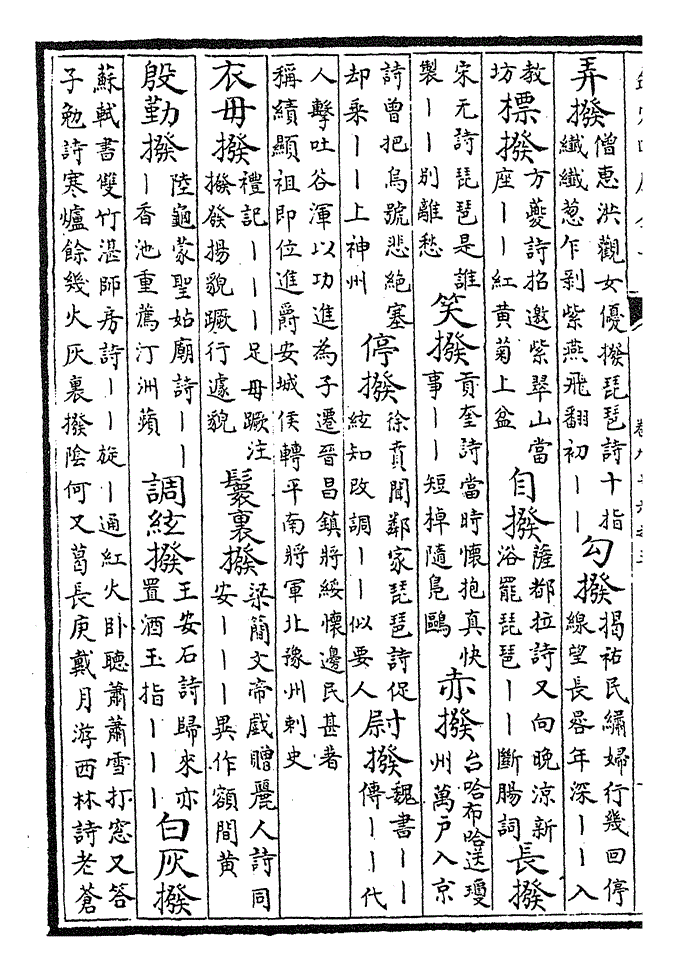 弄撥僧惠洪觀女優撥琵琶詩十指纖纖葱乍剥紫燕飛翻初丨丨勾撥揭祐民繡婦行幾回停線望長晷年深丨丨入
教坊摽撥方夔詩招邀紫翠山當座丨丨紅黄菊上盆自撥薩都拉詩又向晚涼新浴罷琵琶丨丨斷腸詞長撥
宋无詩琵琶是誰製丨丨別離愁笑撥貢奎詩當時懷抱真快事丨丨短棹隨鳬鷗赤撥台哈布哈送瓊州萬户入京
詩曾把烏號悲絶塞却乗丨丨上神州停撥徐賁聞鄰家琵琶詩促絃知改調丨丨似要人尉撥魏書丨丨傳丨丨代
人擊吐谷渾以功進為子遷晉昌鎮將綏懷邊民甚著稱績顯祖即位進爵安城侯轉平南將軍北豫州刺史
衣毋撥禮記丨丨丨足毋蹶注撥發揚貌蹶行遽貌鬟裏撥梁簡文帝戲贈麗人詩同安丨丨丨異作額間黄
殷勤撥陸龜蒙聖姑廟詩丨丨丨香池重薦汀洲蘋調絃撥王安石詩歸來亦置酒玉指丨丨丨白灰撥
蘇軾書雙竹湛師房詩丨丨旋丨通紅火卧聽蕭蕭雪打窓又答子勉詩寒爐餘幾火灰裏撥陰何又葛長庚戴月游西林詩老蒼